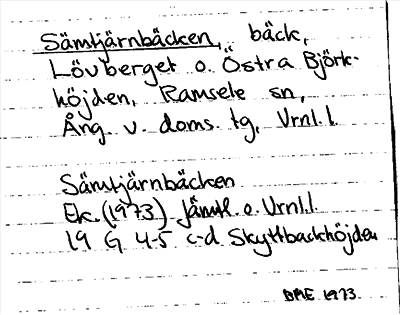 Sämtjärnbäcken, bäck,
Lövberget o. Östra Björk-
höjden, Ramsele sn,
Ång. v. doms. tg, Vrnl. l.
Sämtjärnbäcken
Ek. (1973) Jämtl. o. Vrnl. l.
19 G 4-5 c-d Skyttbackhöjden
BME 1973.